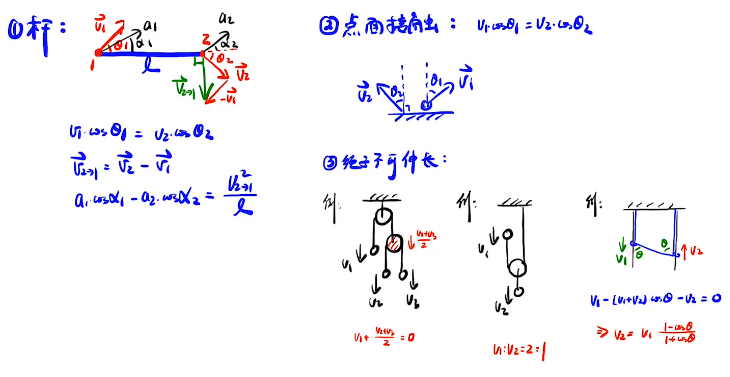 ①杆:
v₁ a₁ θ₁ α₁ 1 l 2 a₂ α₂ θ₂ v₂ v₂→₁ -v₁
v₁·cosθ₁ = v₂·cosθ₂
v₂→₁ = v₂ - v₁
a₁·cosα₁ - a₂·cosα₂ = v²₂→₁ / l
②点面接触: v₁cosθ₁ = v₂·cosθ₂
v₂ θ₂ θ₁ v₁
③绳子不可伸长:
例: v₁ v₂ v₃ (v₂+v₃)/2
v₁ + (v₂+v₃)/2 = 0
例: v₁ v₂
v₁:v₂=2:1
例: v₁ θ θ v₂
v₁-(v₁+v₂)cosθ-v₂=0
⇒ v₂ = v₁ (1-cosθ)/(1+cosθ)